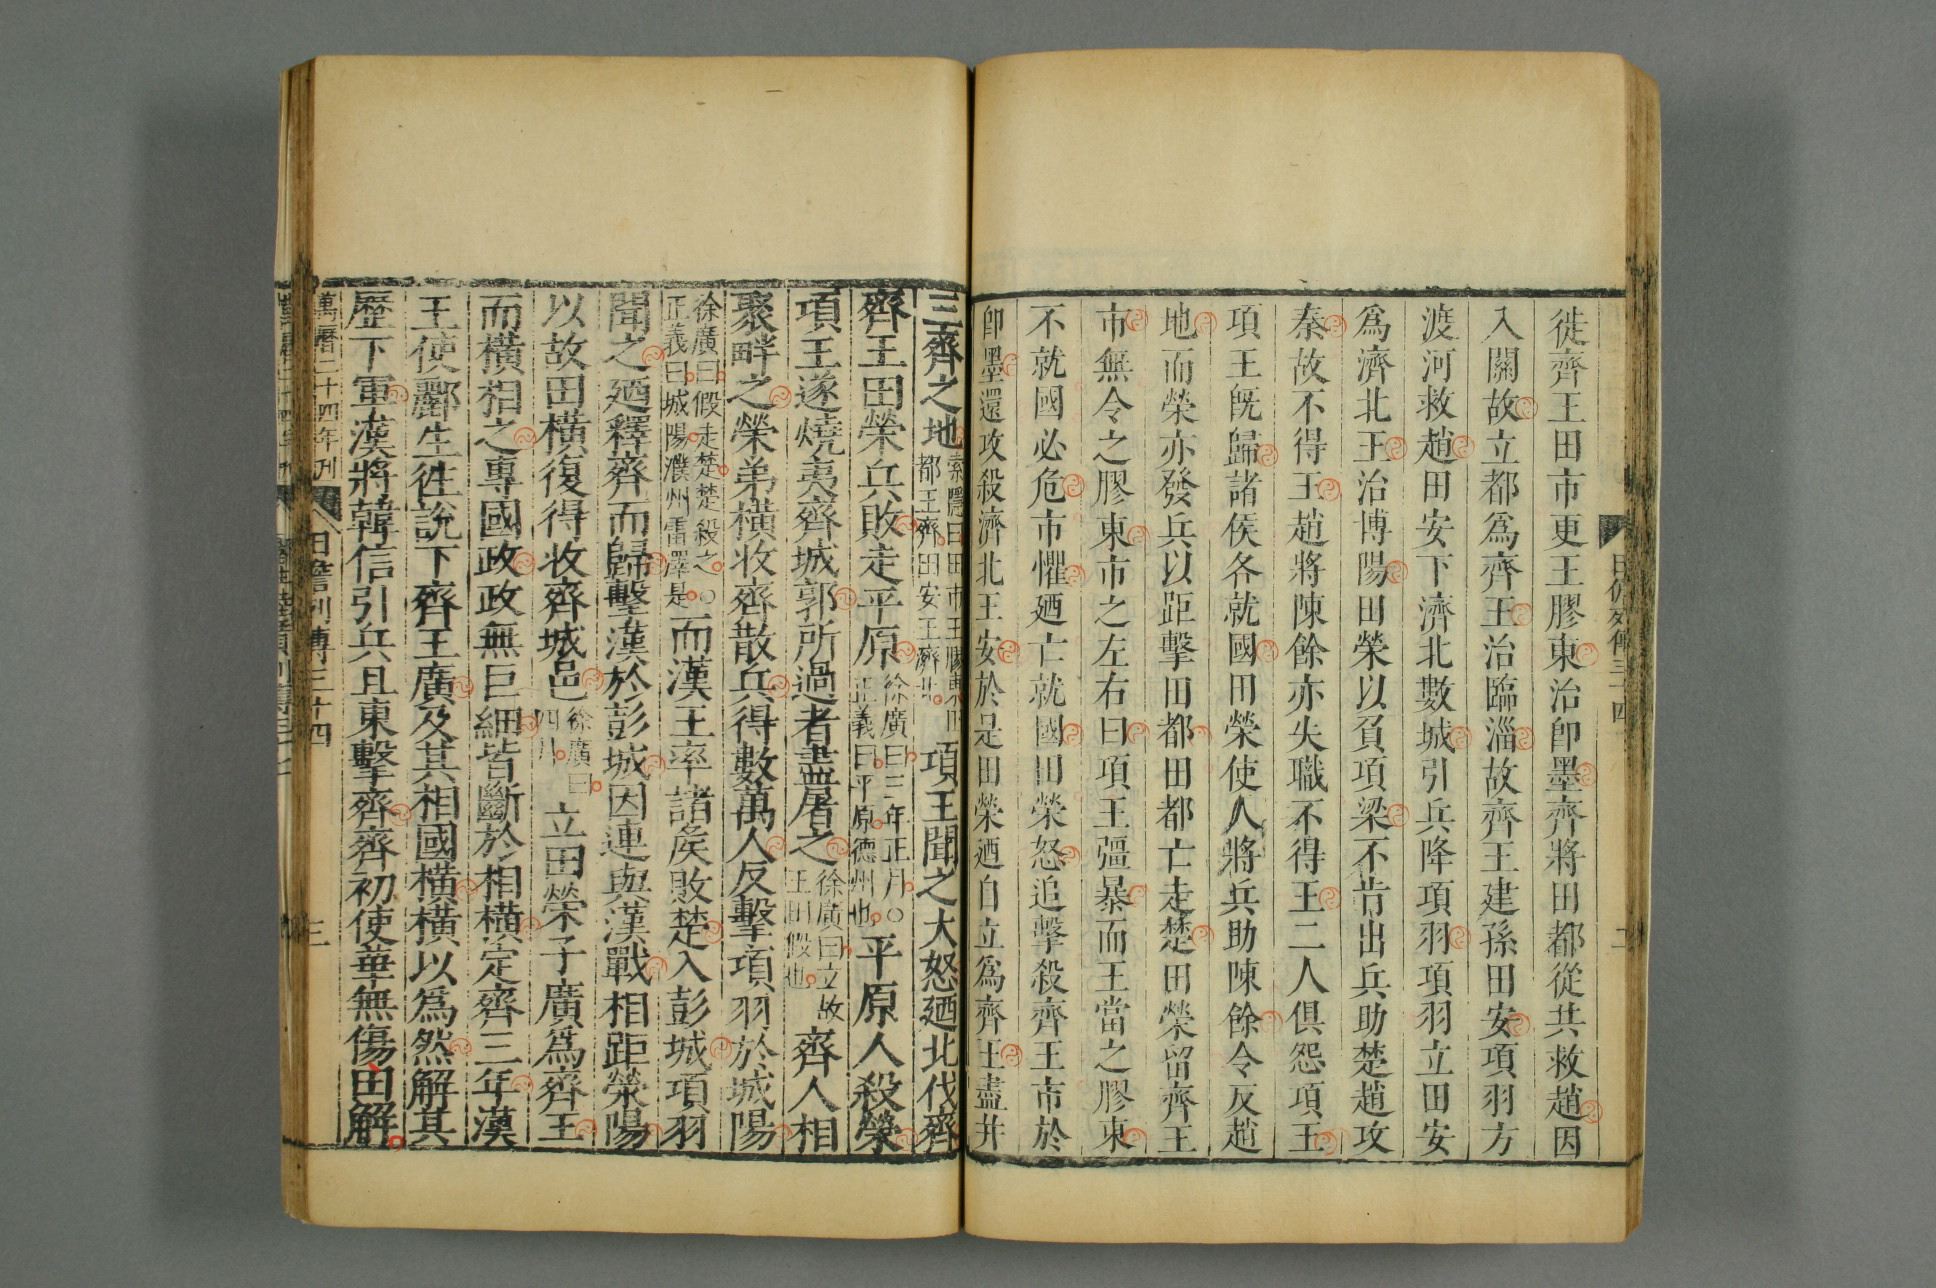 徙齊王田市更王膠東治卽墨齊將田都從共救趙因
入關故立都爲齊王治臨淄故齊王建孫田安項羽方
渡河救趙田安下濟北數城引兵降項羽項羽立田安
爲濟北王治博陽田榮以負項梁不肯出兵助楚趙攻
秦故不得王趙將陳餘亦失職不得王二人俱怨項王
項王旣歸諸侯各就國田榮使人將兵助陳餘令反趙
地而榮亦發兵以距擊田都田都亡走楚田榮留齊王
市無令之膠東市之左右曰項王彊暴而王當之膠東
不就國必危市懼廼亡就國田榮怒追擊殺齊王市於
卽墨還攻殺濟北王安於是田榮廼自立爲齊王盡幷
三齊之地索隱曰田市王膠東田都王齊田安王濟北項王聞之大怒廼北伐齊
齊王田榮兵敗走平原徐廣曰三年正月○正義曰平原德州也平原人殺榮
項王遂燒夷齊城郭所過者盡屠之徐廣曰立故王田假也齊人相
聚畔之榮弟橫收齊散兵得數萬人反擊項羽於城陽
徐廣曰假走楚楚殺之○正義曰城陽濮州雷澤是而漢王率諸侯敗楚入彭城項羽
聞之廼釋齊而歸擊漢於彭城因連與漢戰相距滎陽
以故田橫復得收齊城邑徐廣曰四月立田榮子廣爲齊王
而橫相之專國政政無巨細皆斷於相橫定齊三年漢
王使酈生往說下齊王廣及其相國橫橫以爲然解其
歷下軍漢將韓信引兵且東擊齊齊初使華無傷田解
萬曆二十四年刊 田儋列傳三十四 三